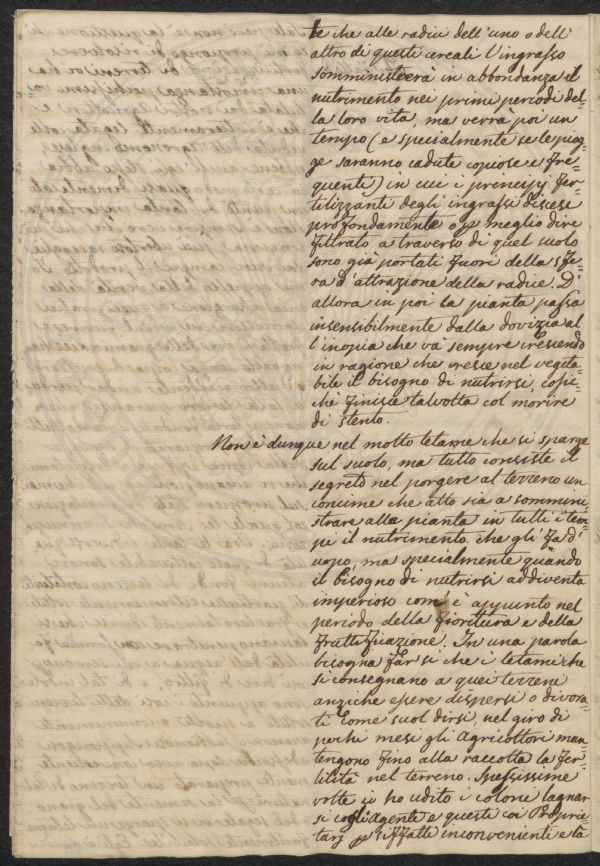 te che alle radici dell'uno o dell'
altro di questi cereali l'ingrasso
somministrerà in abbondanza il
nutrimento nei primi periodi del=
la loro vita, ma verrà poi un
tempo (e specialmente se le piog=
ge saranno cadute copiose e fre=
quenti) in cui i principj fer=
tilizzanti degli ingrassi discesi
profondamente o p meglio dire
filtrato a traverso di quel suolo
sono già portati fuori della sfe=
ra d'attrazione della radice. D'
allora in poi la pianta passa
insensibilmente dalla dovizia al
l'inopia che và sempre crescendo
in ragione che cresce nel vegeta=
bile il bisogno di nutrirsi, cosic=
chè finisce talvolta col morire
di stento.
Non è dunque nel molto letame che si sparge
sul suolo, ma tutto consiste il
segreto nel porgere al terreno un
concime che atto sia a sommini=
strare alla pianta in tutti i tem=
pi il nutrimento che gli fa d'
uopo, ma specialmente quando
il bisogno di nutrirsi addiventa
imperioso com' è appunto nel
periodo della fioritura e della
fruttificazione. In una parola
bisogna far si che i letami che
si consegnano a quei terreni
anziche essere dispersi o divora=
ti come suol dirsi, nel giro di
pochi mesi gli Agricoltori man=
tengono fino alla raccolta la fer=
tilità nel terreno. Spessissime
volte io ho udito i coloni lagnar
si cogli Agente e questi coi Proprie=
tarj p siffatte inconveniente e ta